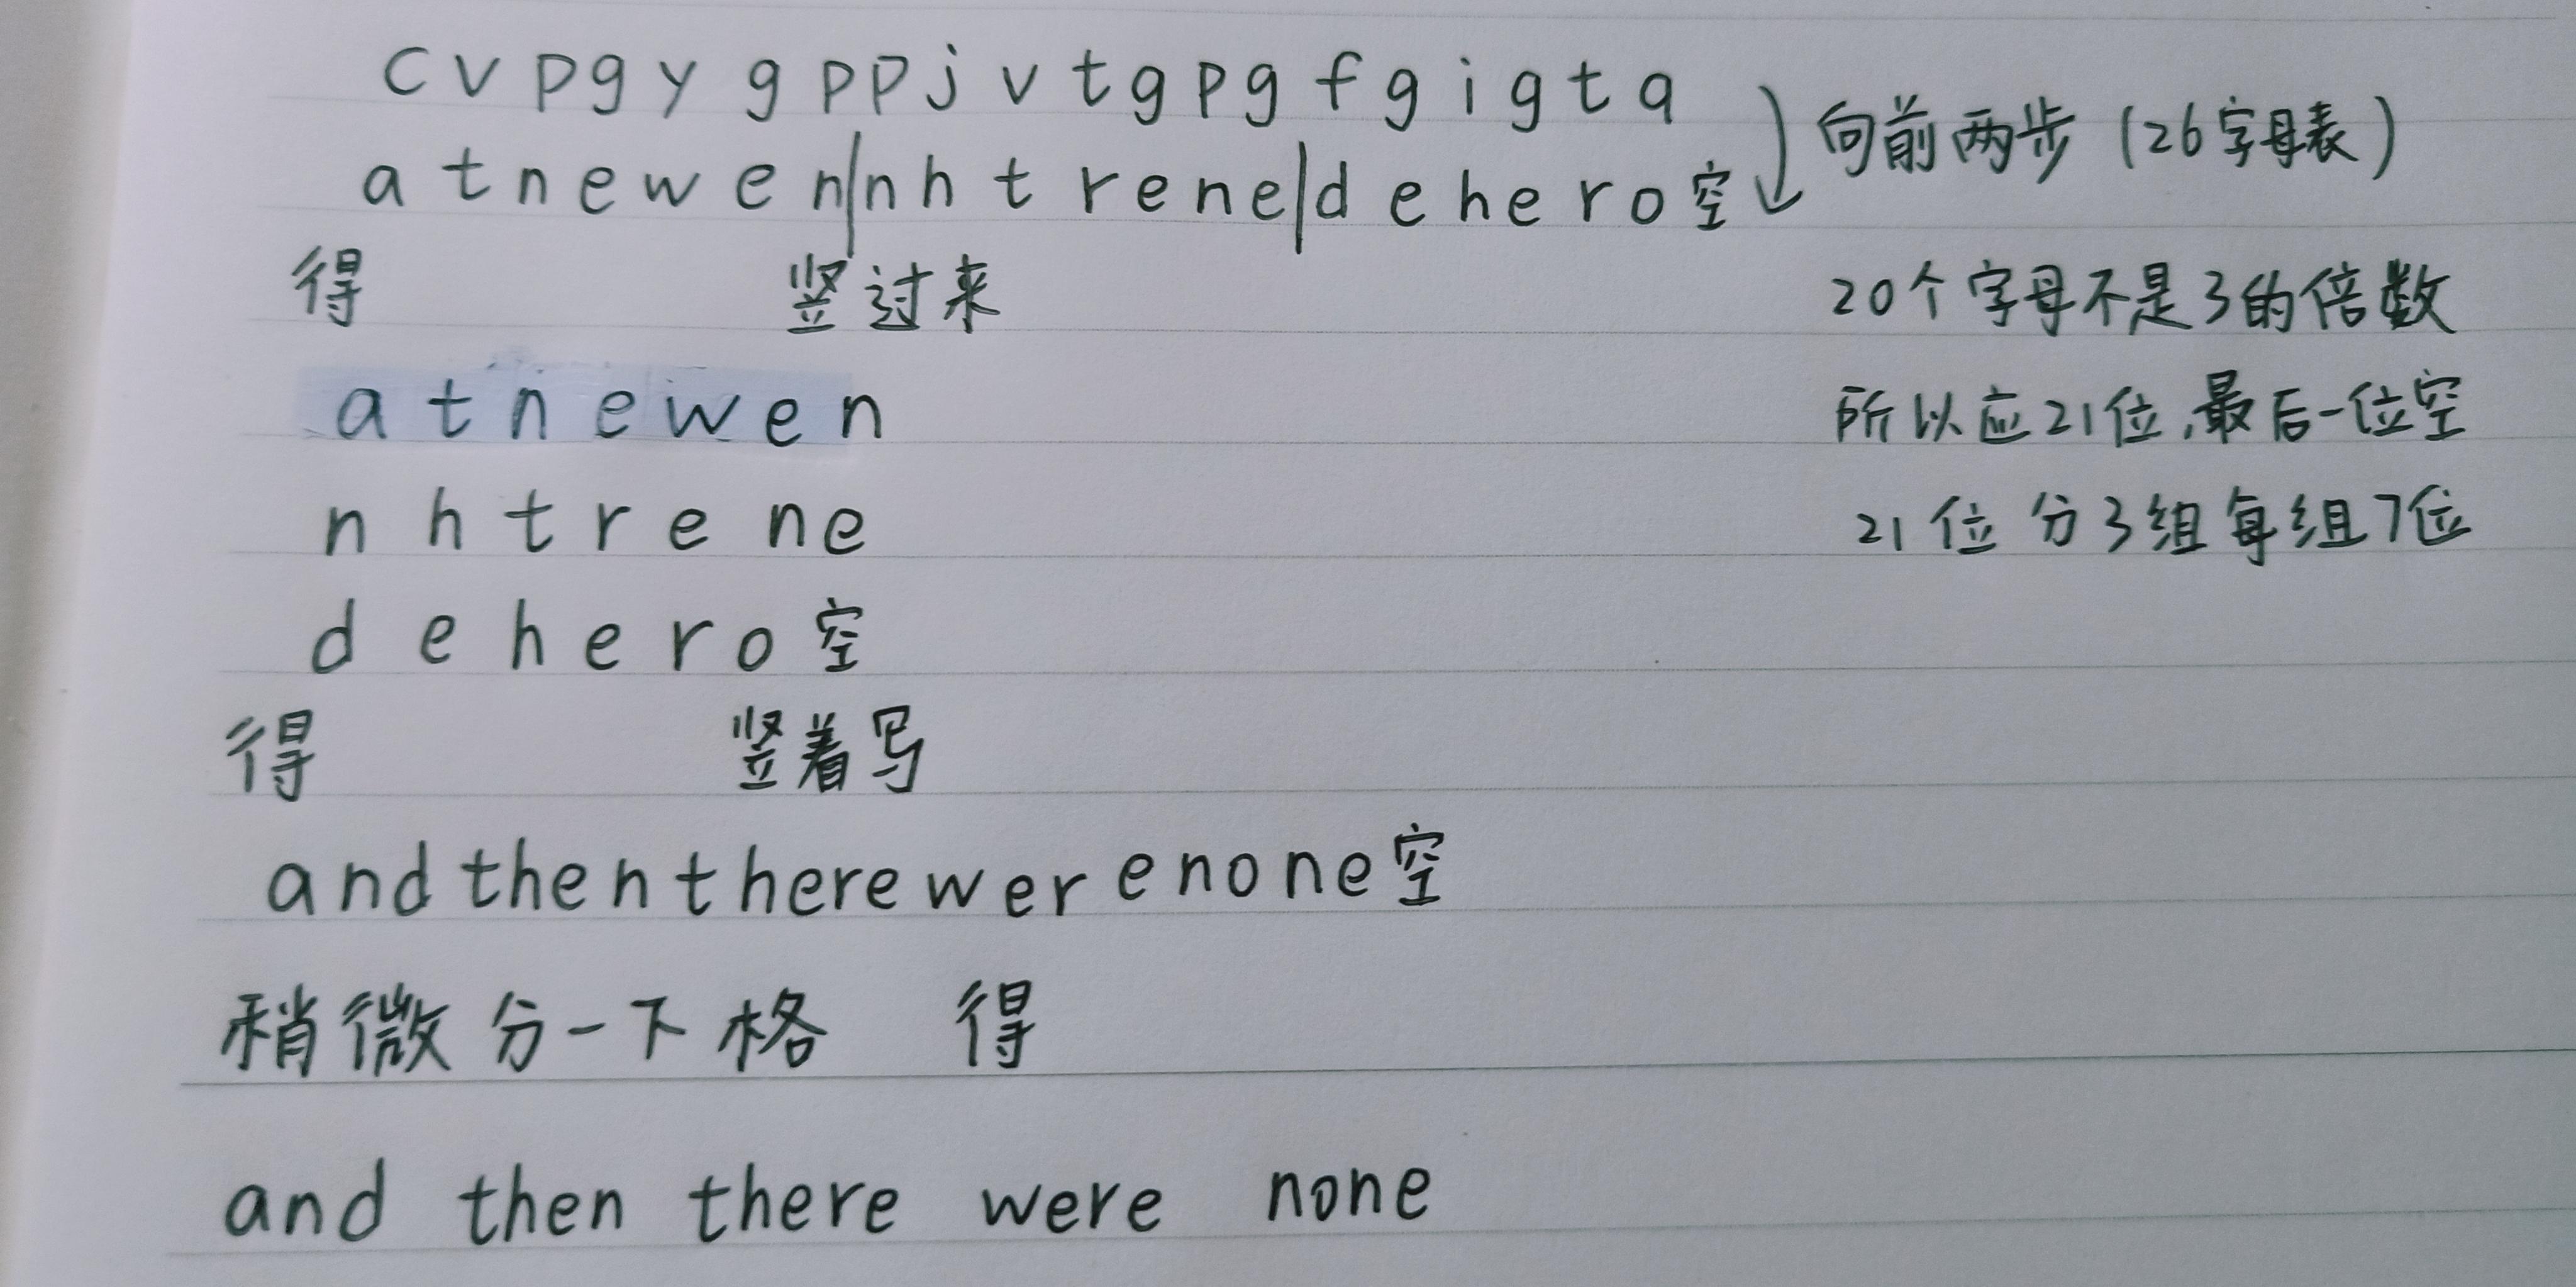 cvpgygppjvtgpgfgigtq
atnewen|nhtrene|dehero空 向前两步(26字母表)
得 竖过来 20个字母不是3的倍数
atnewen 所以应21位,最后一位空
nhtrene 21位分3组每组7位
dehero空
得 竖着写
andthentherewerenone空
稍微分一下格 得
and then there were none